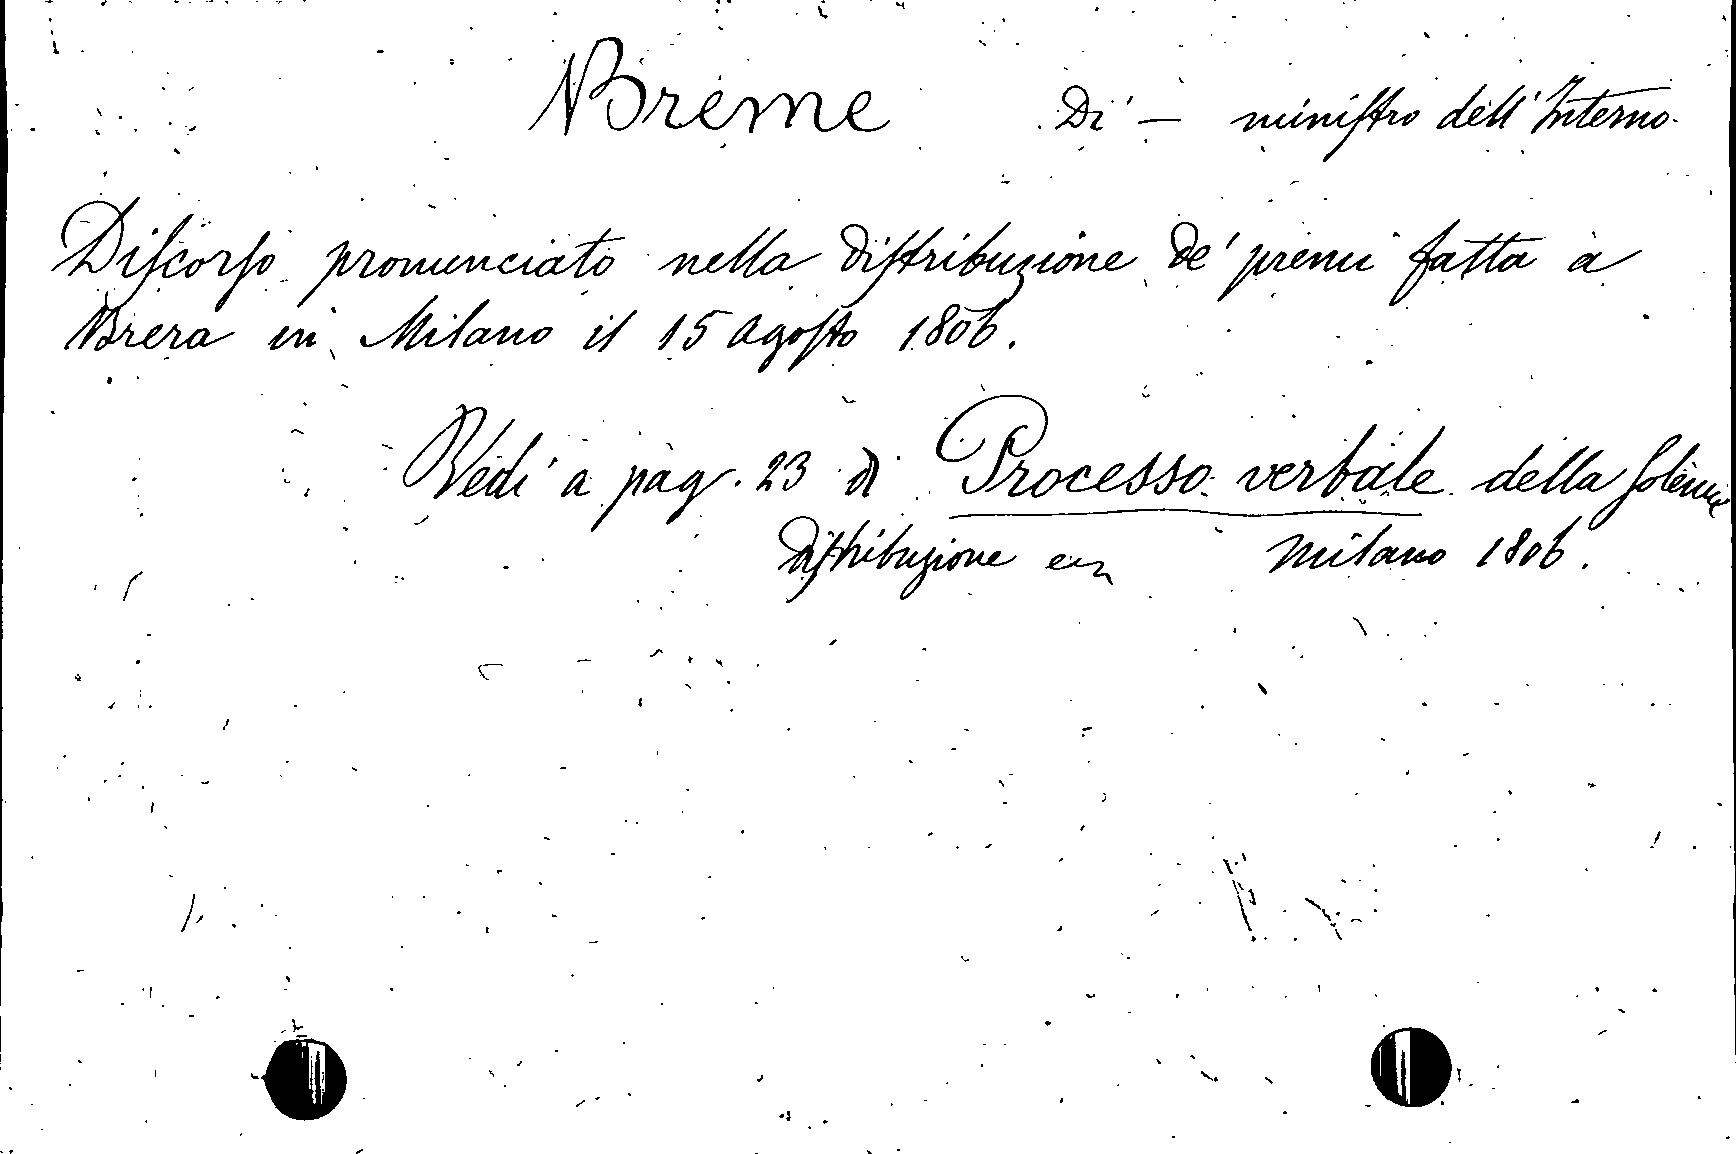 Breme Di — ministro dell'Interno.
Discorso pronunciato nella distribuzione de' premi fatta a
Brera in Milano il 15 Agosto 1806.
Vedi a pag. 23 di Processo verbale della solenne
distribuzione Milano 1806.